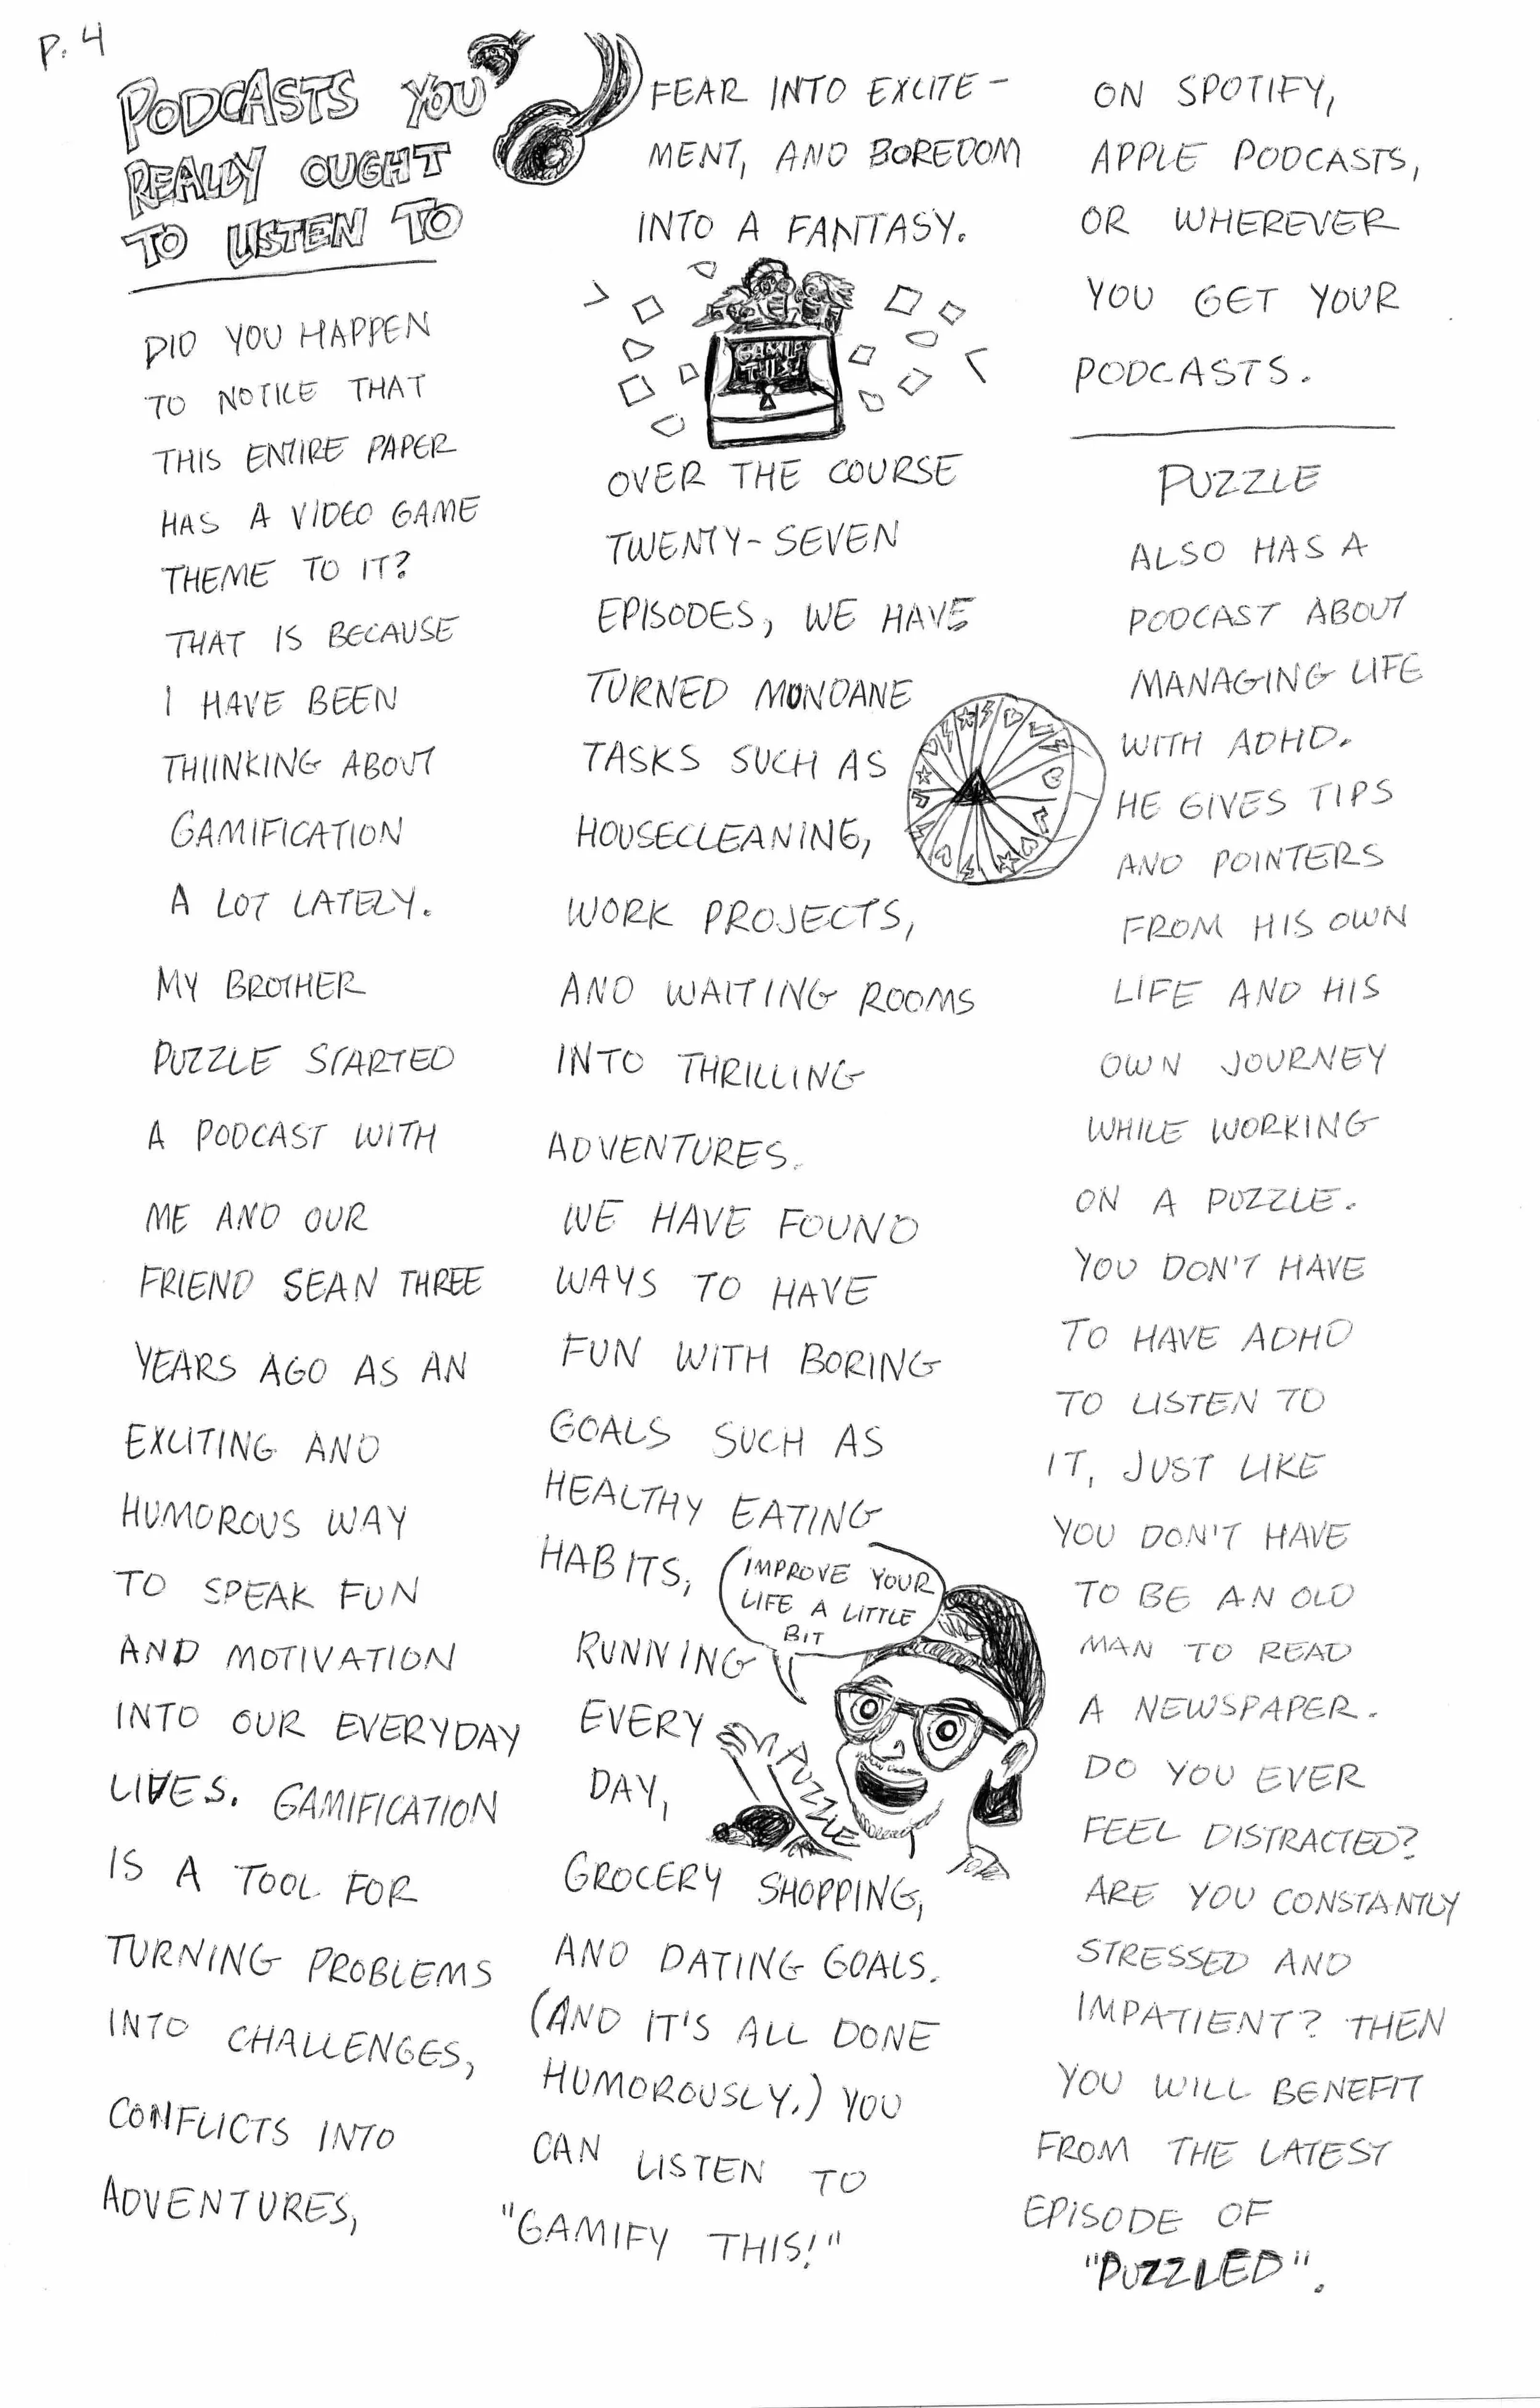 P. 4
PODCASTS YOU
REALLY OUGHT
TO LISTEN TO
DID YOU HAPPEN
TO NOTICE THAT
THIS ENTIRE PAPER
HAS A VIDEO GAME
THEME TO IT?
THAT IS BECAUSE
I HAVE BEEN
THIINKING ABOUT
GAMIFICATION
A LOT LATELY.
MY BROTHER
PUZZLE STARTED
A PODCAST WITH
ME AND OUR
FRIEND SEAN THREE
YEARS AGO AS AN
EXCITING AND
HUMOROUS WAY
TO SPEAK FUN
AND MOTIVATION
INTO OUR EVERYDAY
LIVES. GAMIFICATION
IS A TOOL FOR
TURNING PROBLEMS
INTO CHALLENGES,
CONFLICTS INTO
ADVENTURES,
FEAR INTO EXCITE-
MENT, AND BOREDOM
INTO A FANTASY.
GAMIFY
THIS!
OVER THE COURSE
TWENTY-SEVEN
EPISODES, WE HAVE
TURNED MUNDANE
TASKS SUCH AS
HOUSECLEANING,
WORK PROJECTS,
AND WAITING ROOMS
INTO THRILLING
ADVENTURES.
WE HAVE FOUND
WAYS TO HAVE
FUN WITH BORING
GOALS SUCH AS
HEALTHY EATING
HABITS,
IMPROVE YOUR
LIFE A LITTLE
BIT
RUNNING
EVERY
DAY,
PUZZLE
GROCERY SHOPPING,
AND DATING GOALS.
(AND IT'S ALL DONE
HUMOROUSLY.) YOU
CAN LISTEN TO
"GAMIFY THIS!"
ON SPOTIFY,
APPLE PODCASTS,
OR WHEREVER
YOU GET YOUR
PODCASTS.
PUZZLE
ALSO HAS A
PODCAST ABOUT
MANAGING LIFE
WITH ADHD.
HE GIVES TIPS
AND POINTERS
FROM HIS OWN
LIFE AND HIS
OWN JOURNEY
WHILE WORKING
ON A PUZZLE.
YOU DON'T HAVE
TO HAVE ADHD
TO LISTEN TO
IT, JUST LIKE
YOU DON'T HAVE
TO BE AN OLD
MAN TO READ
A NEWSPAPER.
DO YOU EVER
FEEL DISTRACTED?
ARE YOU CONSTANTLY
STRESSED AND
IMPATIENT? THEN
YOU WILL BENEFIT
FROM THE LATEST
EPISODE OF
"PUZZLED".